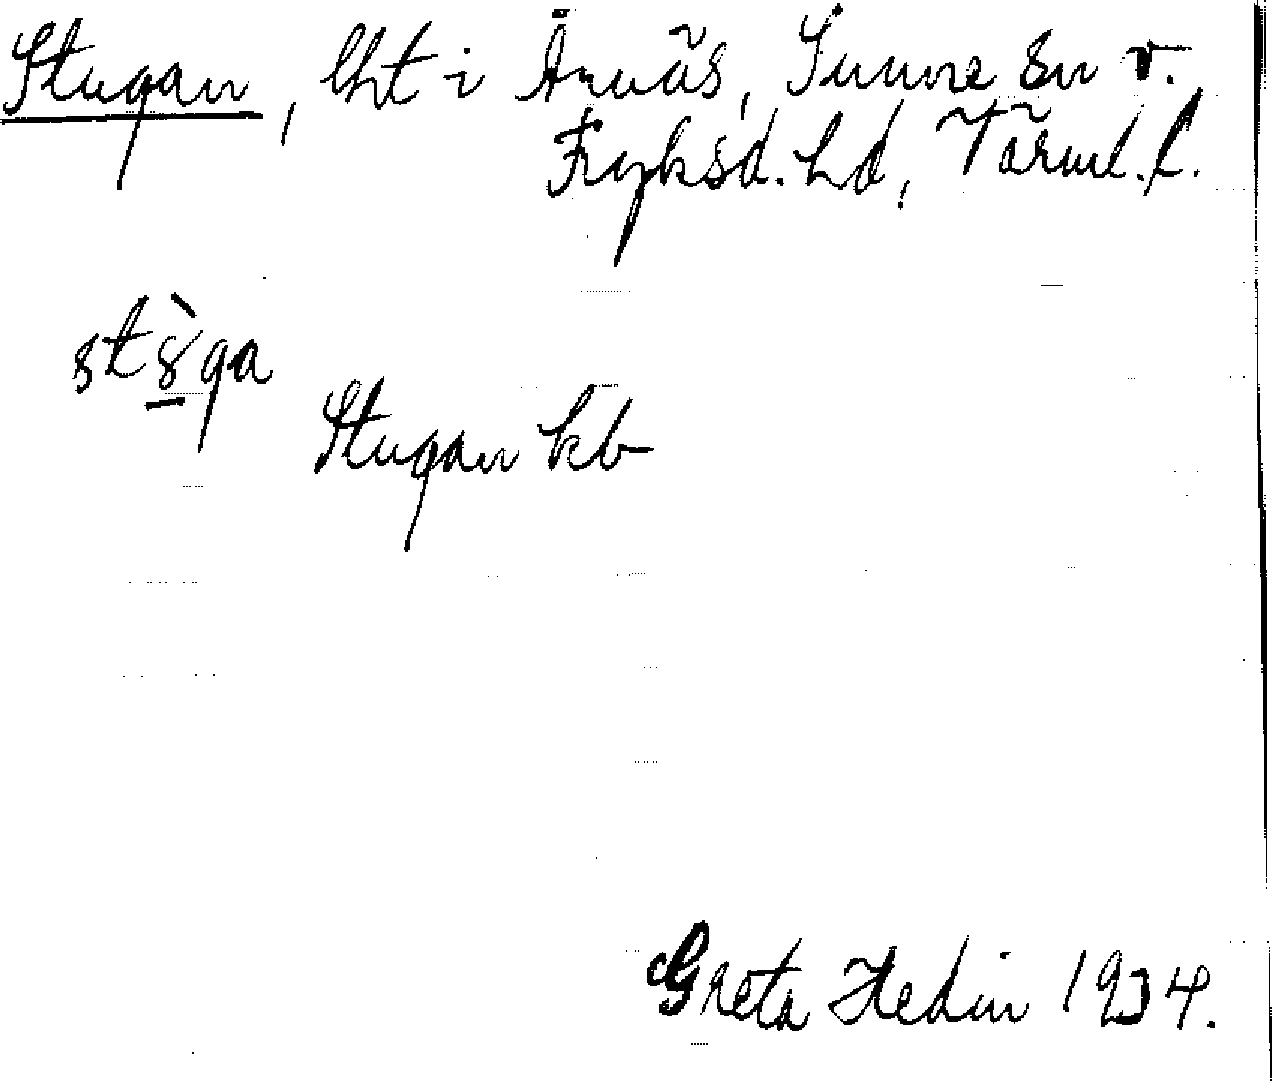 Stugan, lht i Ämnäs, Sunne sn v.
Fryksd. hd, Värml. l.
stȣ̀ga
Stugan kb
Greta Hedin 1934.